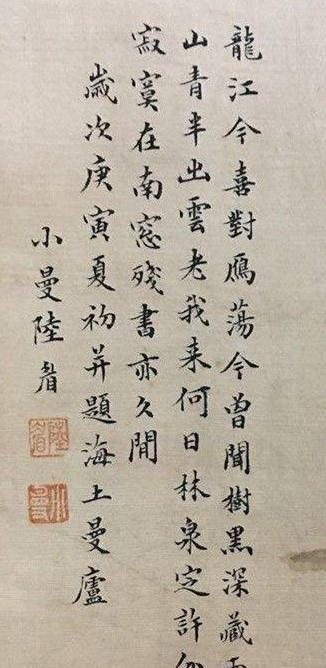 龍江今喜對鴈蕩今曾聞樹黑深藏
山青半出雲老我来何日林泉定許
寂寞在南窓殘書亦久閒
歲次庚寅夏初并題海上曼廬
小曼陸眉
陸眉
小曼